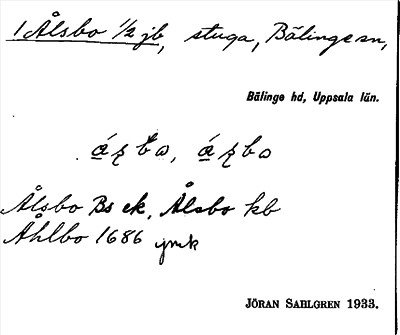 1 Ålsbo 1/2 jb, stuga, Bälinge sn,
Bälinge hd, Uppsala län.
Ålsbo Bs ek, Ålsbo kb
Åhlbo 1686 jmk
JÖRAN SAHLGREN 1933.